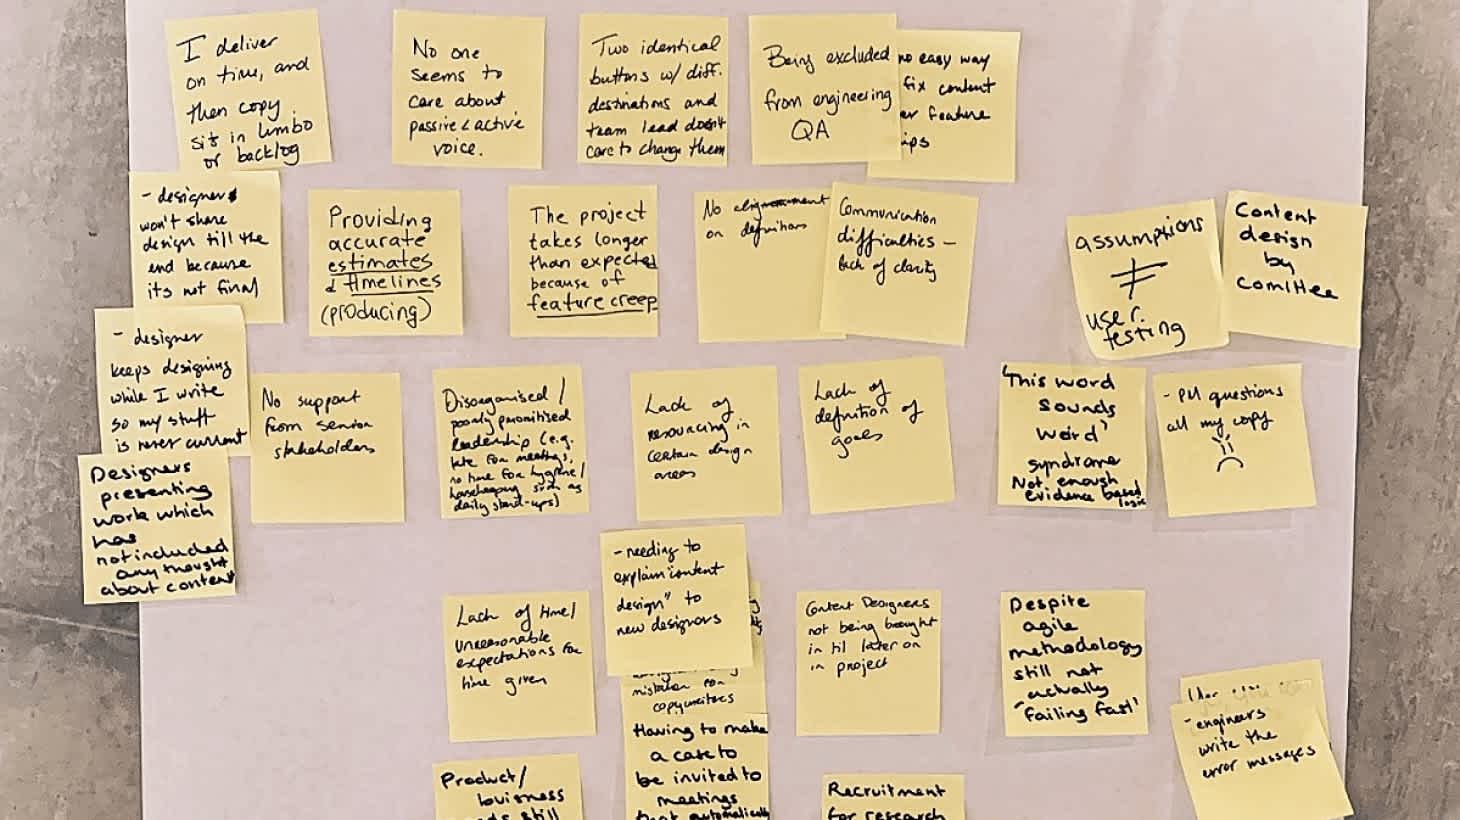 I deliver
on time, and
then copy
sits in limbo
or backlog
No one
seems to
care about
passive & active
voice.
Two identical
buttons w/ diff.
destinations and
team lead doesn't
care to change them
Being excluded
from engineering
QA
no easy way
fix content
er feature
ips
- designers
won't share
design till the
end because
its not final
Providing
accurate
estimates
& timelines
(producing)
The project
takes longer
than expected
because of
feature creep
No alignment
on definitions
Communication
difficulties –
lack of clarity
assumptions
≠
user
testing
Content
design
by
comittee
- designer
keeps designing
while I write
so my stuff
is never current
No support
from senior
stakeholders
Disorganised /
poorly prioritised
leadership (e.g.
late for meetings,
no time for hygiene/
housekeeping such as
daily stand-ups)
Lack of
resourcing in
certain design
areas
Lack of
definition of
goals
'This word
sounds
weird'
syndrome
Not enough
evidence based
logic
- PM questions
all my copy
Designers
presenting
work which
has
not included
any thought
about content
Lack of time/
unreasonable
expectations for
time given
- needing to
explain "content
design" to
new designers
mistaken for
copywriters
Having to make
a case to
be invited to
meetings
that automatically
Content Designers
not being brought
in til later on
in project
Despite
agile
methodology
still not
actually
'failing fast'
- engineers
write the
error messages
Product/
business
still
Recruitment
for research